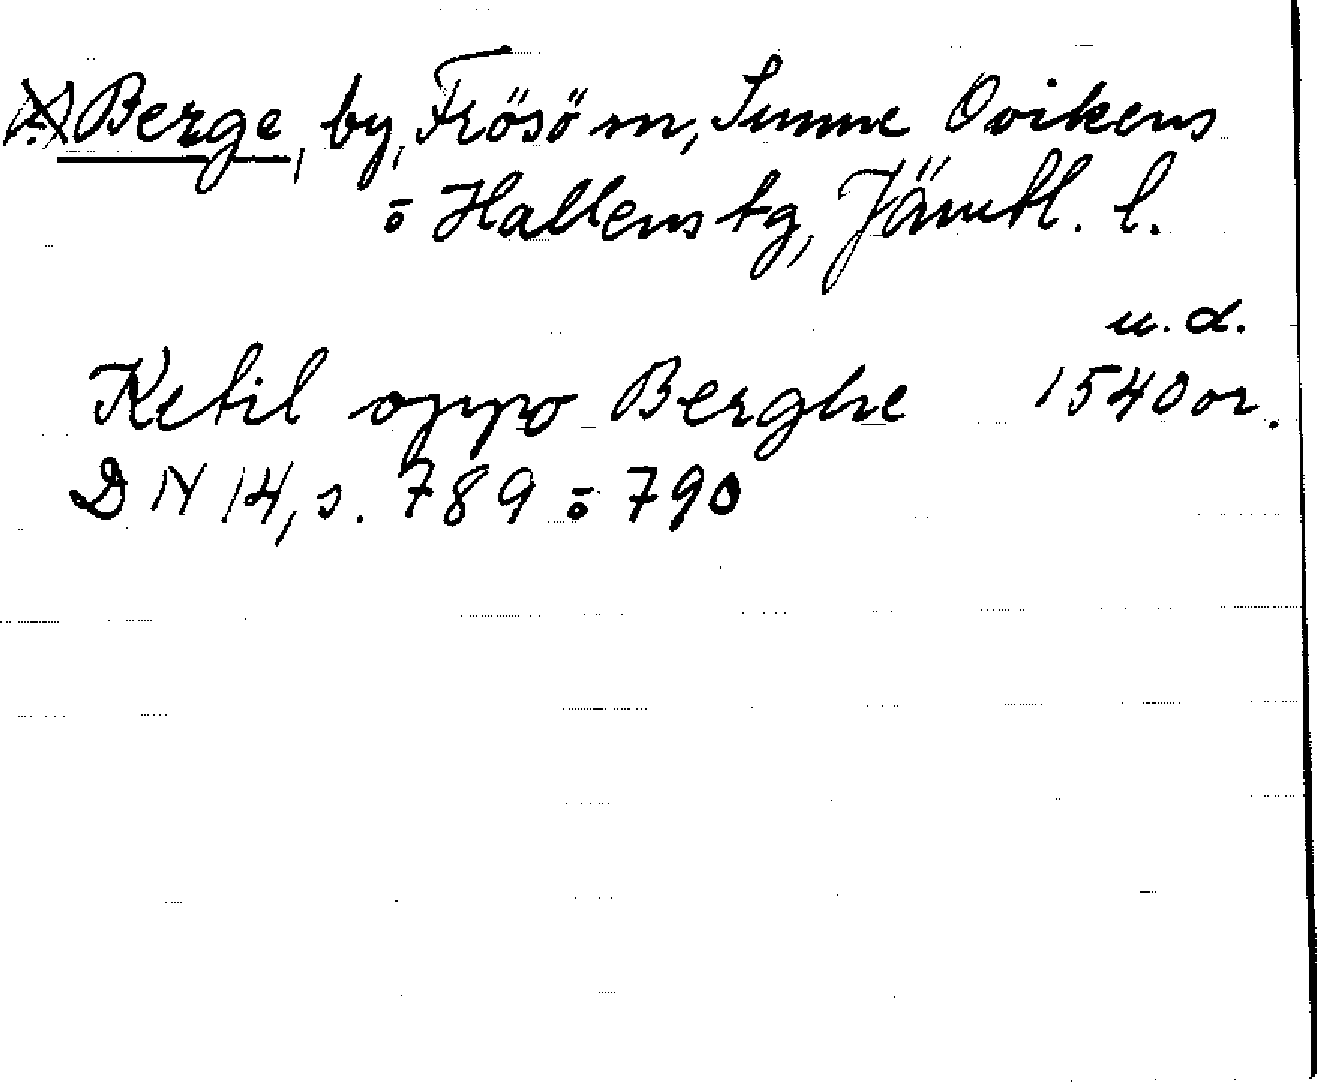 Berge, by, Frösö sn, Sunne Ovikens
o Hallens tg, Jämtl. l.
u.d.
Ketil oppo Berghe 1540 or.
DN 14, s. 789 o 790